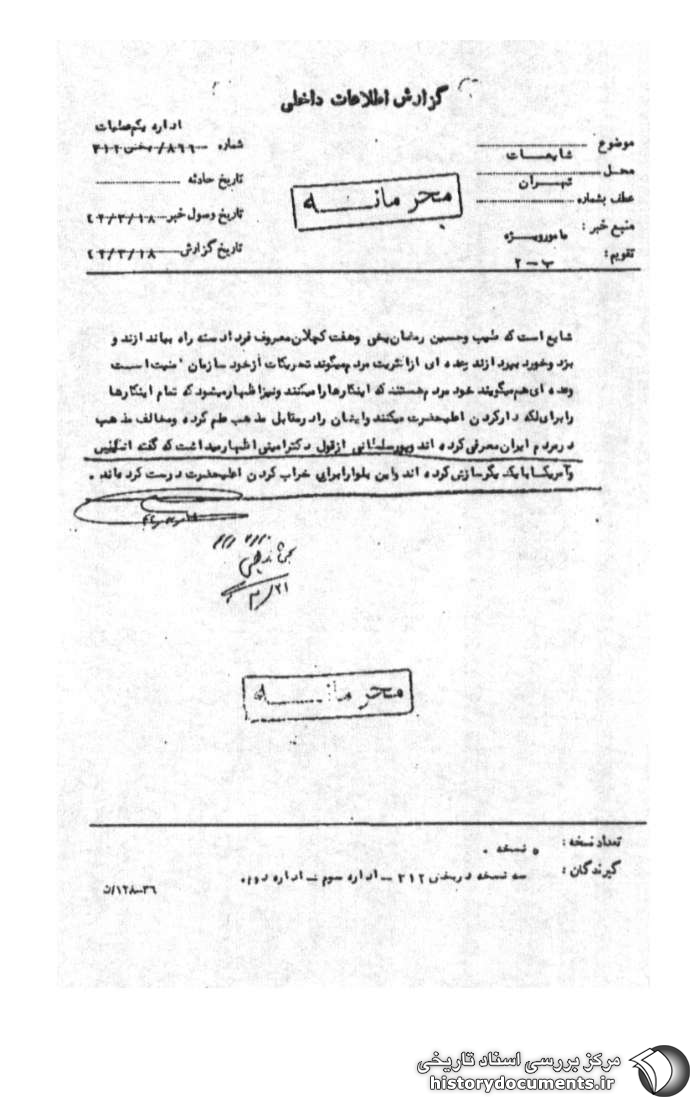 گزارش اطلاعات داخلی
اداره یکم عملیات
شماره ۸۶۶/بخش ۳۱۲
تاریخ حادثه
تاریخ وصول خبر ۴۲/۳/۱۸
تاریخ گزارش ۴۲/۳/۱۸
موضوع شایعات
محل تهران
عطف بشماره
منبع خبر : مامور ویژه
تقویم : ب - ۲
محرمانه
شایع است که طیب وحسین رمضان یخی وهفت کچلان معروف قرار است راه بیاندازند و
بزد وخورد بپردازند وعده ای از اکثریت مردم میگویند تحریکات از خود سازمان امنیت است
وعده ای هم میگویند خود مردم هستند که اینکارها را میکنند ونیز اظهار میشود که تمام اینکارها
را برای لکه دار کردن اعلیحضرت میکنند وایشان را در مقابل مذهب علم کرده ومخالف مذهب
در مردم ایران معرفی کرده اند وپور سلطانی از قول دکتر امینی اظهار میداشت که گفته انگلیس
وآمریکا با یکدیگر سازش کرده اند واین بلوا را برای خراب کردن اعلیحضرت درست کرده اند .
۲۱/۳
محرمانه
تعداد نسخه : ۵ نسخه .
گیرندگان : سه نسخه در بخش ۳۱۲ - اداره سوم - اداره دوم .
۱۲۸-۳۶/ث
مرکز بررسی اسناد تاریخی
historydocuments.ir